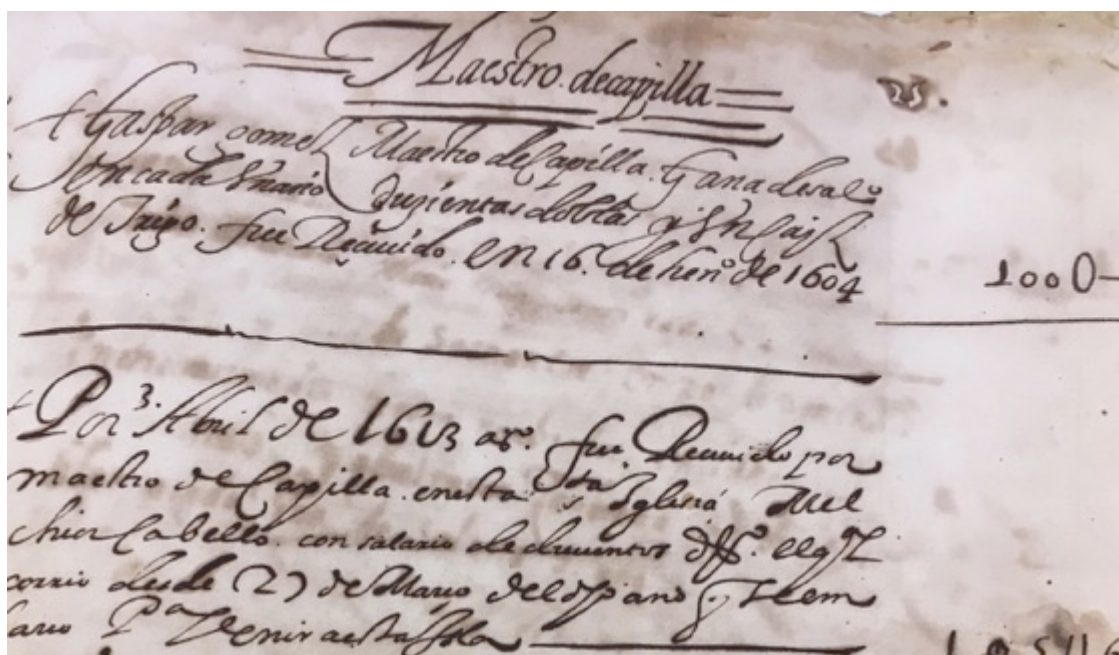 Maestro. decapilla
Gaspar gomez Maestro de Capilla. Gana de sal.º
En cada Vn año duzientas doblas y Vn Caiz
de Trigo. fue Reciuido. en 16. de hen.º de 1604
1000
Por 3. Abril de 1613 as.º fue Reciuido por
maestro de Capilla. en esta s.ta Iglesia Mel
chior Cabello. con salario de ducientos el q̃l
corrio desde 27 de Março del d̃ho año y
para Venir a esta Isla